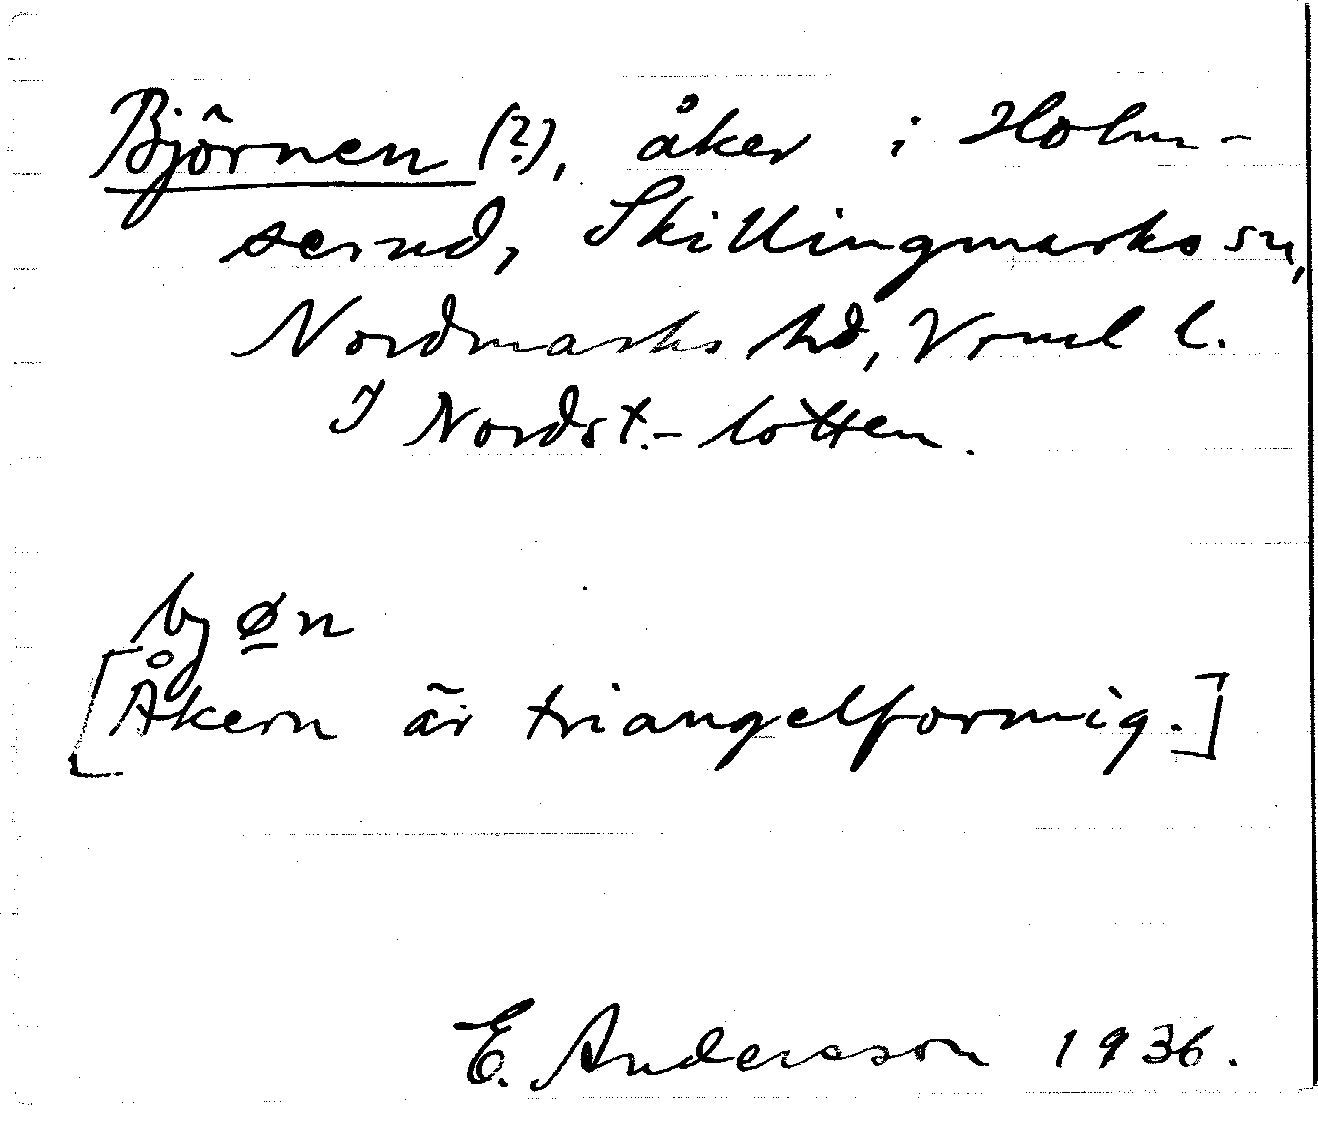 Björnen (?), åker i Holm-
serud, Skillingmarks sn,
Nordmarks hd, Vrml l.
I Nordst.-lotten.
bjøn
[Åkern är triangelformig.]
E. Andersson 1936.